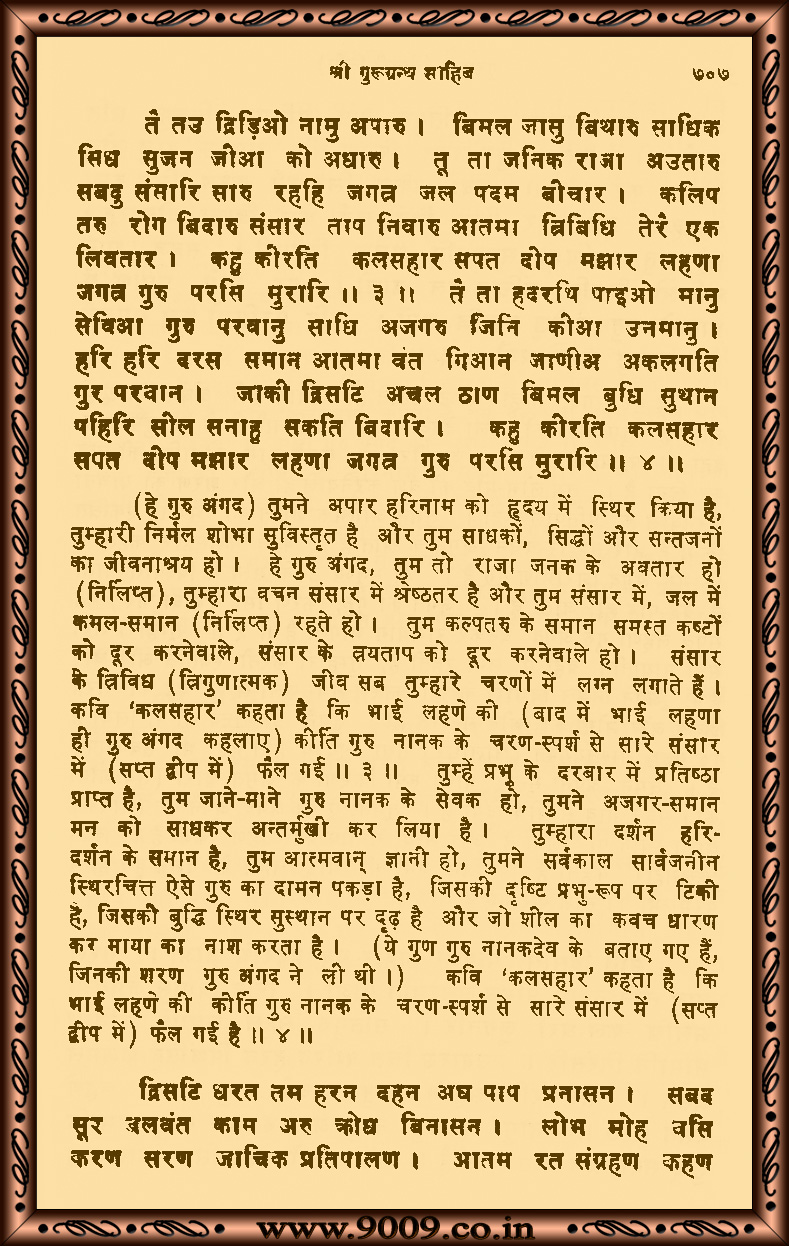 श्री गुरूग्रन्थ साहिब ७०७
तै तउ द्रिड़िओ नामु अपारु । बिमल जासु बिथारु साधिक
सिध सुजन जीआ को अधारु । तू ता जनिक राजा अउतारु
सबदु संसारि सारु रहहि जगत्र जल पदम बीचार । कलिप
तरु रोग बिदारु संसार ताप निवारु आतमा त्रिबिधि तेरै एक
लिवतार । कहु कीरति कलसहार सपत दीप मझार लहणा
जगत्र गुरु परसि मुरारि ।। ३ ।। तै ता हदरथि पाइओ मानु
सेविआ गुरु परवानु साधि अजगरु जिनि कीआ उनमानु ।
हरि हरि दरस समान आतमा वंत गिआन जाणीअ अकलगति
गुर परवान । जाकी द्रिसटि अचल ठाण बिमल बुधि सुथान
पहिरि सील सनाहु सकति बिदारि । कहु कीरति कलसहार
सपत दीप मझार लहणा जगत्र गुरु परसि मुरारि ।। ४ ।।
(हे गुरु अंगद) तुमने अपार हरिनाम को हृदय में स्थिर किया है,
तुम्हारी निर्मल शोभा सुविस्तृत है और तुम साधकों, सिद्धों और सन्तजनों
का जीवनाश्रय हो । हे गुरु अंगद, तुम तो राजा जनक के अवतार हो
(निर्लिप्त), तुम्हारा वचन संसार में श्रेष्ठतर है और तुम संसार में, जल में
कमल-समान (निर्लिप्त) रहते हो । तुम कल्पतरु के समान समस्त कष्टों
को दूर करनेवाले, संसार के त्रयताप को दूर करनेवाले हो । संसार
के त्रिविध (त्रिगुणात्मक) जीव सब तुम्हारे चरणों में लग्न लगाते हैं ।
कवि ‘कलसहार’ कहता है कि भाई लहणे की (बाद में भाई लहणा
ही गुरु अंगद कहलाए) कीर्ति गुरु नानक के चरण-स्पर्श से सारे संसार
में (सप्त द्वीप में) फैल गई ।। ३ ।। तुम्हें प्रभु के दरबार में प्रतिष्ठा
प्राप्त है, तुम जाने-माने गुरु नानक के सेवक हो, तुमने अजगर-समान
मन को साधकर अन्तर्मुखी कर लिया है । तुम्हारा दर्शन हरि-
दर्शन के समान है, तुम आत्मवान् ज्ञानी हो, तुमने सर्वकाल सार्वजनीन
स्थिरचित्त ऐसे गुरु का दामन पकड़ा है, जिसकी दृष्टि प्रभु-रूप पर टिकी
है, जिसकी बुद्धि स्थिर सुस्थान पर दृढ़ है और जो शील का कवच धारण
कर माया का नाश करता है । (ये गुण गुरु नानकदेव के बताए गए हैं,
जिनकी शरण गुरु अंगद ने ली थी ।) कवि ‘कलसहार’ कहता है कि
भाई लहणे की कीर्ति गुरु नानक के चरण-स्पर्श से सारे संसार में (सप्त
द्वीप में) फैल गई है ।। ४ ।।
द्रिसटि धरत तम हरन दहन अघ पाप प्रनासन । सबद
सूर बलवंत काम अरु क्रोध बिनासन । लोभ मोह वसि
करण सरण जाचिक प्रतिपालण । आतम रत संग्रहण कहण
www.9009.co.in